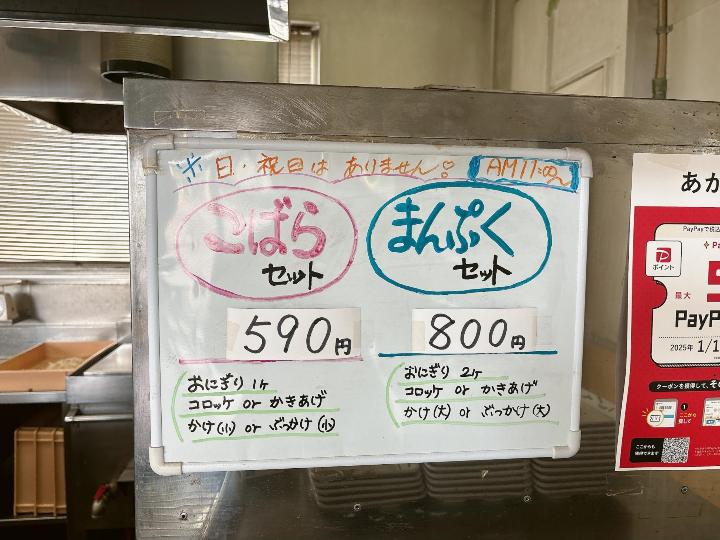 ※日・祝日はありません! AM11:00〜
こばら
セット
590円
おにぎり 1ヶ
コロッケ or かきあげ
かけ(小) or ぶっかけ(小)
まんぷく
セット
800円
おにぎり 2ヶ
コロッケ or かきあげ
かけ(大) or ぶっかけ(大)
あか
PayPayで税込
ポイント
最大
PayP
2025年 1/1
クーポンを獲得して、その
ここから
ここからも
獲得できます